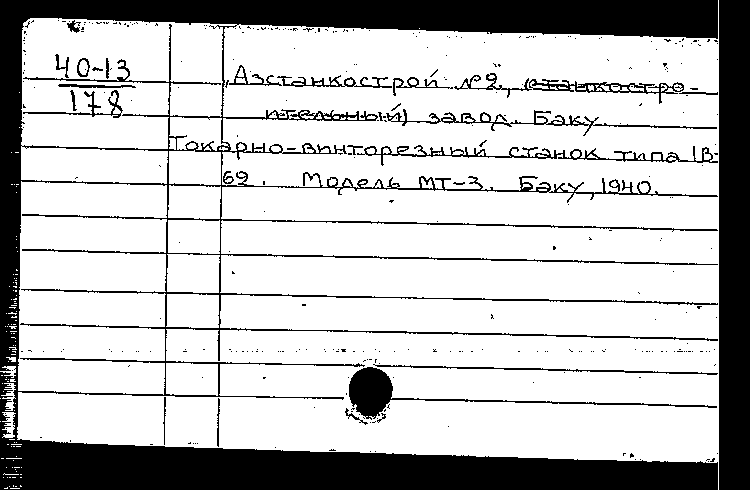 40-13
178
„Азстанкострой №2", (станкостро-
ительный) завод. Баку.
Токарно-винторезный станок типа 1В-
69. Модель МТ-3. Баку, 1940.